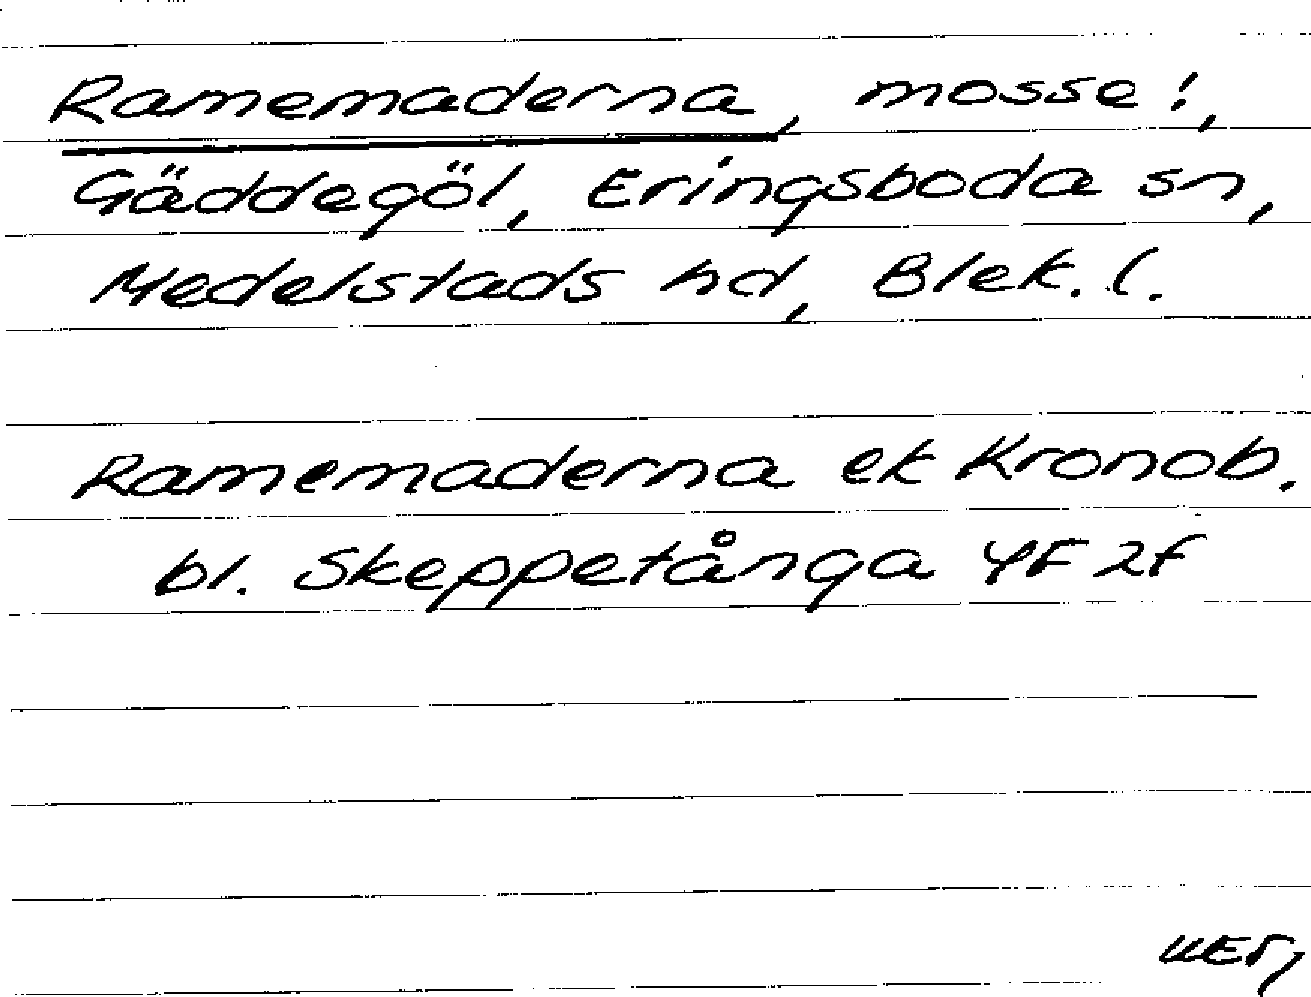 Ramemaderna, mosse !,
Gäddegöl, Eringsboda sn,
Medelstads hd, Blek. l.
Ramemaderna ek Kronob.
bl. Skeppetånga 4F 2f